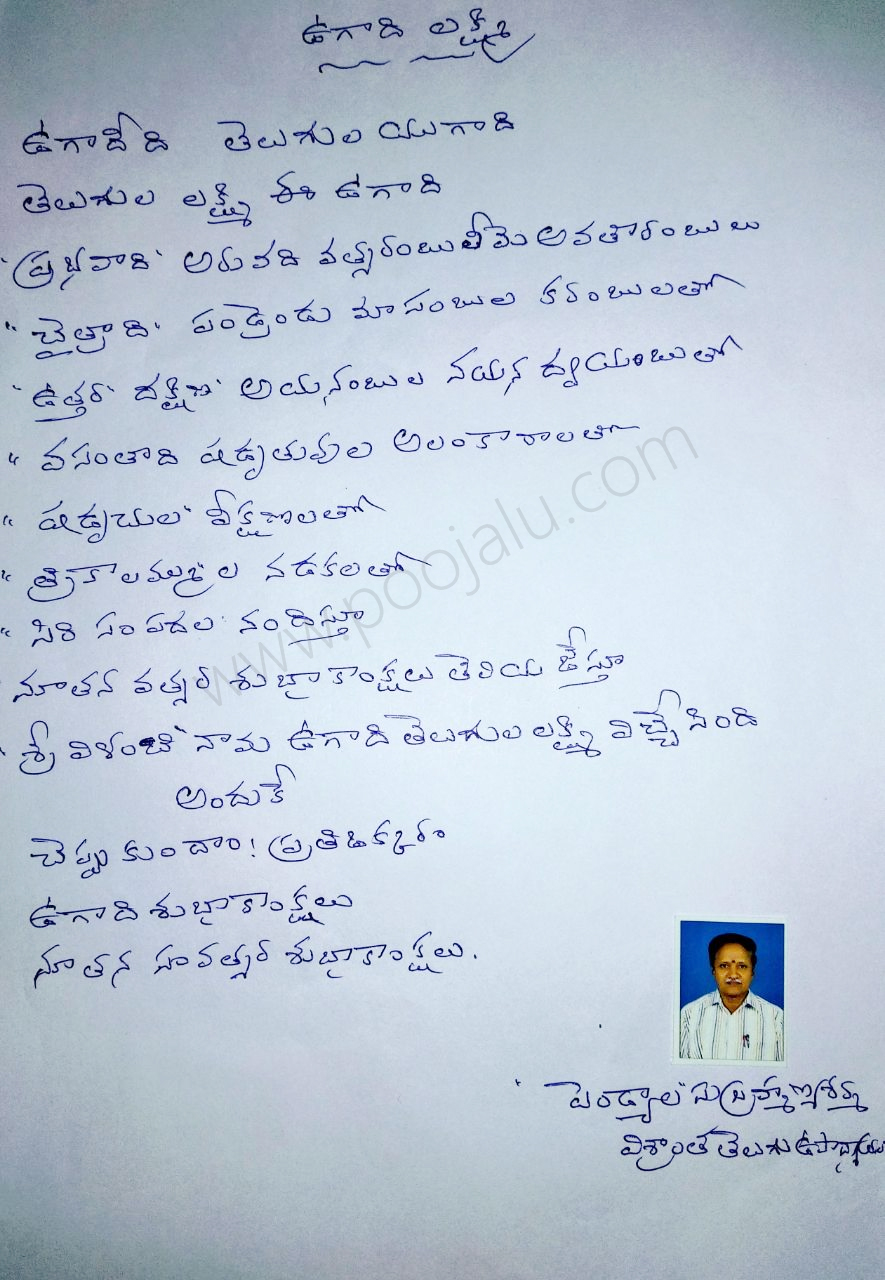 ఉగాది లక్ష్మి
ఉగాదేది తెలుగుల యుగాది
తెలుగుల లక్ష్మి ఈ ఉగాది
"ప్రభవాది" అరువది వత్సరంబులీమె అవతారంబులు
"చైత్రాది" పండ్రెండు మాసంబుల కరంబులతో
"ఉత్తర" దక్షిణ" అయనంబుల నయన ద్వయంబుతో
" వసంతాది షడృతువుల అలంకారాలతో
" షడృచుల" వీక్షణలతో
" త్రికాలమ్ముల నడకలతో
" సిరి సంపదల నందిస్తూ
నూతన వత్సర శుభాకాంక్షలు తెలియ జేస్తూ
"శ్రీ విళంబి" నామ ఉగాది తెలుగుల లక్ష్మి విచ్చేసింది
అందుకే
చెప్పుకుందాం! ప్రతిఒక్కరం
ఉగాది శుభాకాంక్షలు
నూతన సంవత్సర శుభాకాంక్షలు.
"పెండ్యాల" సుబ్రహ్మణ్యశర్మ
విశ్రాంత తెలుగు ఉపాధ్యాయులు
www.poojalu.com